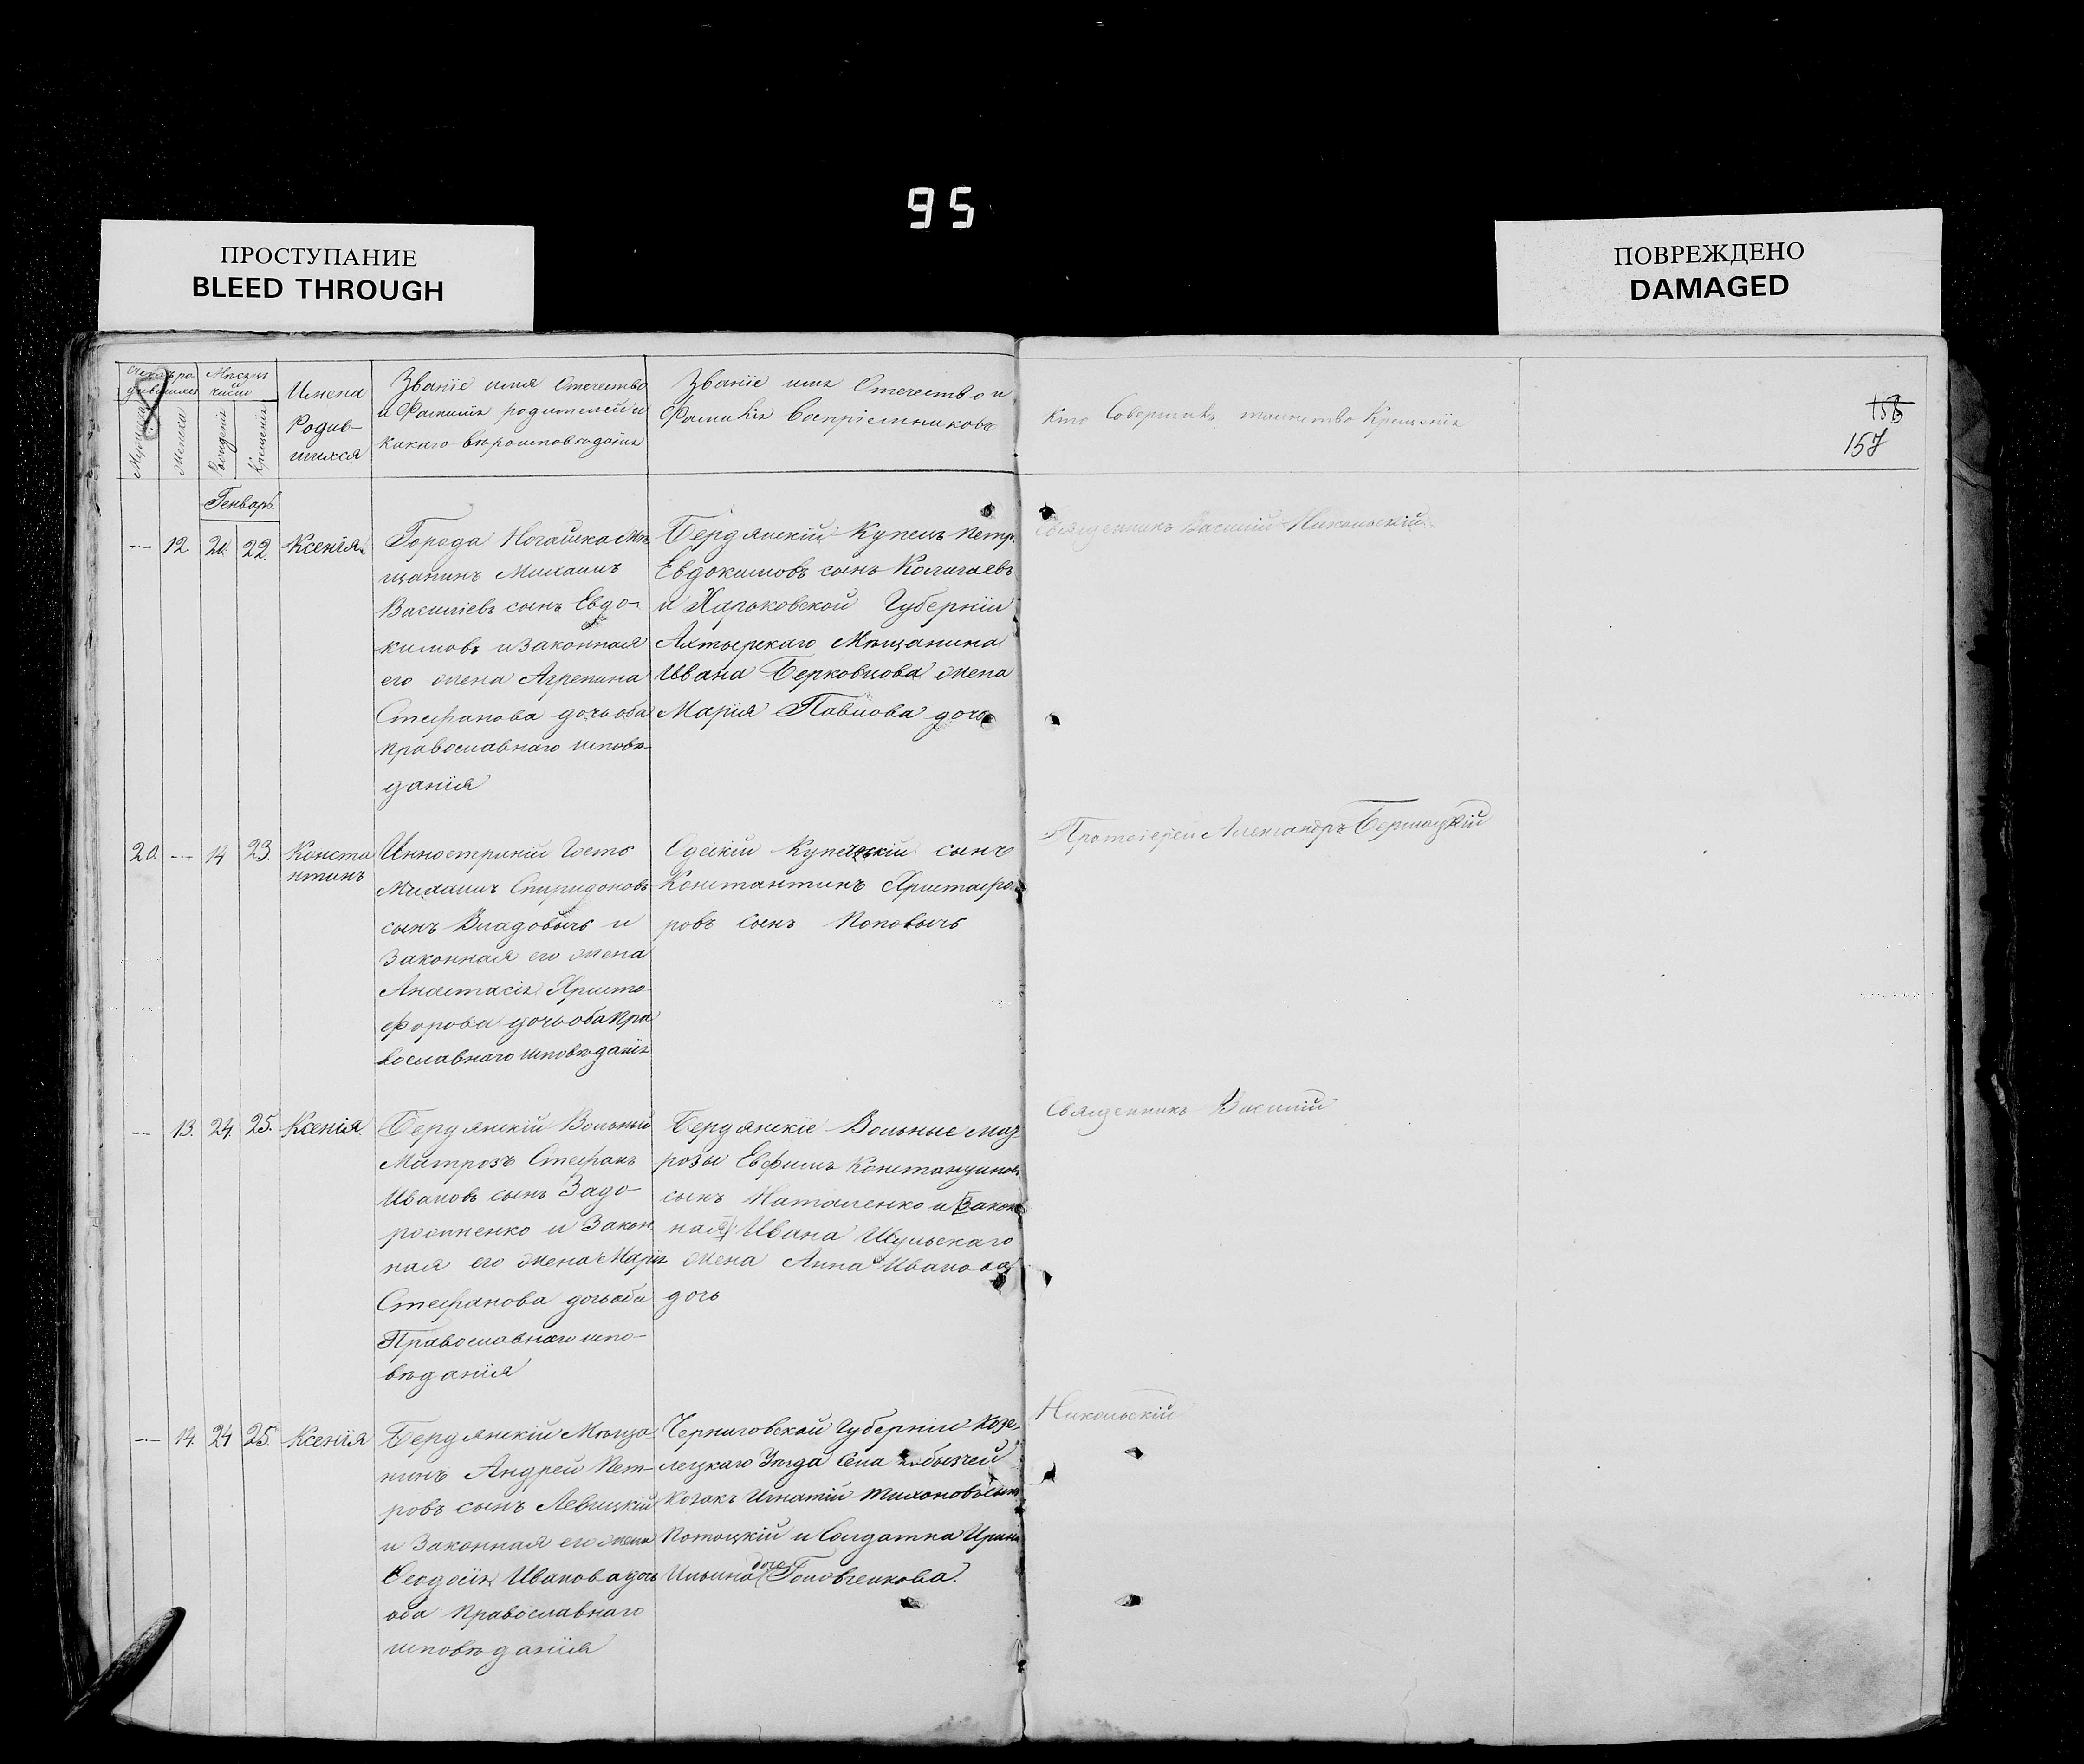 95
ПРОСТУПАНИЕ
BLEED THROUGH
ПОВРЕЖДЕНО
DAMAGED
Мѣсяцъ
и
число
Женска
Рожденія
Крещенія
Имена
Родив-
шихся
Званіе имя Отечество
и Фамилія родителей и
какого вѣроисповѣданія
Званіе имя Отечество и
Фамилія Воспріемниковъ
Кто Совершилъ таинство Крещенія
158
157
Генварь.
12. 20. 22. Ксенія.
Города Ногайска Мѣ-
щанинъ Михаилъ
Василіевъ сынъ Евдо-
кимовъ и Законная
его жена Агрепина
Стефанова дочь оба
православнаго исповѣ-
данія
Бердянскій Купецъ Петръ
Евдокимовъ сынъ
и Харьковской Губерніи
Ахтырскаго Мѣщанина
Ивана Берковцова жена
Марія Павлова дочь
Священникъ Василій Никольскій
20. 14 23. Конста
нтинъ
Инностранній Гость
Михаилъ Спиридоновъ
сынъ Владовычь и
Законная его жена
Анастасія Христо-
форова дочь оба пра
вославнаго исповѣданія
Одескій Купеческій сынъ
Константинъ Христофо
ровъ сынъ Поповычь
Протоіерей Александръ
13. 24. 25. Ксенія.
Бердянскій Вольный
Матрозъ Стефанъ
Ивановъ сынъ Задо-
рожненко и Закон
ная его жена Марія
Стефанова дочь оба
Православнаго испо-
вѣданія
Бердянскіе Вольные мат
розы Евфимъ Константиновъ
сынъ Наталенко и Закон
ная Ивана Шульскаго
жена Анна Иванова
дочь
Священникъ Василій
14. 24 25. Ксенія
Бердянскій Мѣща-
нинъ Андрей Пет-
ровъ сынъ Левицкій
и Законная его жена
Феодосія Иванова дочь
оба Православнаго
исповѣданія
Черниговской Губерніи Козе-
лецкаго Уѣзда Села
Козакъ Игнатій Тихоновъ сынъ
Потоцкій и Солдатка Ирина
Ильина дочь Головченкова.
Никольскій